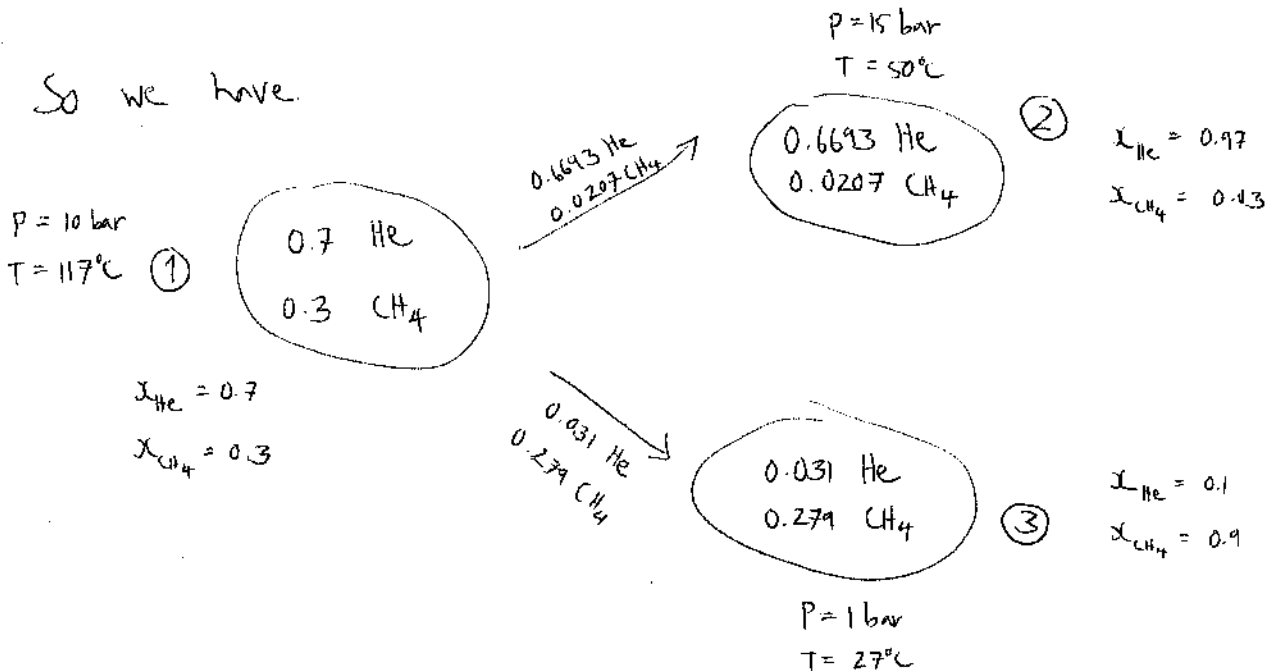 So we have.
P = 10 bar
T = 117°C ①
0.7 He
0.3 CH₄
x_He = 0.7
x_CH₄ = 0.3
0.6693 He
0.0207 CH₄
P = 15 bar
T = 50°C
0.6693 He
0.0207 CH₄
②
x_He = 0.97
x_CH₄ = 0.03
0.031 He
0.279 CH₄
0.031 He
0.279 CH₄
③
x_He = 0.1
x_CH₄ = 0.9
P = 1 bar
T = 27°C